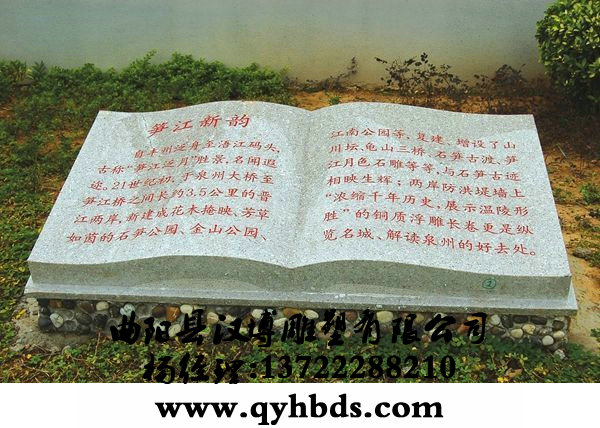 笋江新韵
自丰州金鸡至浯江码头，
古称“笋江逆月”胜景，名闻遐
迩。21世纪初，于泉州大桥至
笋江桥之间长约3.5公里的晋
江两岸，新建成花木掩映、芳草
如茵的石笋公园、金山公园、
江南公园等，复建、增设了山
川坛、龟山三桥、石笋古渡、笋
江月色石雕等等，与石笋古迹
相映生辉；两岸防洪堤墙上
“浓缩千年历史，展示温陵形
胜”的铜质浮雕长卷更是纵
览名城、解读泉州的好去处。
2
曲阳县汉博雕塑有限公司
杨经理:13722288210
www.qyhbds.com